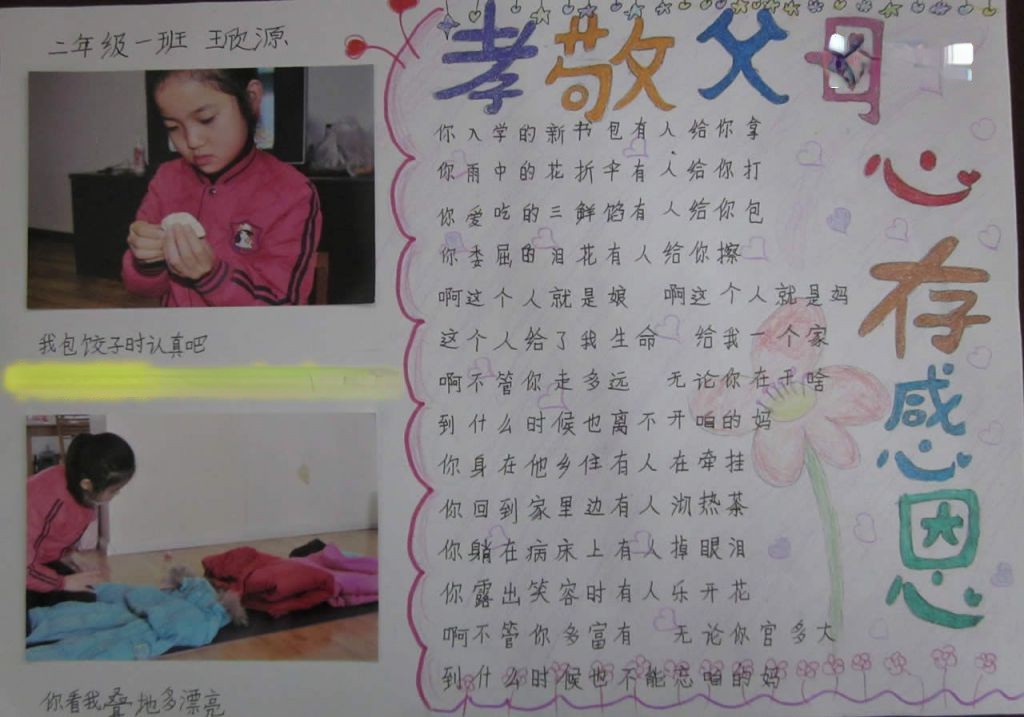 二年级一班 王欣源
我包饺子时认真吧
你看我叠地多漂亮
孝敬父母
心存感恩
你入学的新书包有人给你拿
你雨中的花折伞有人给你打
你爱吃的三鲜馅有人给你包
你委屈的泪花有人给你擦
啊这个人就是娘 啊这个人就是妈
这个人给了我生命 给我一个家
啊不管你走多远 无论你在干啥
到什么时候也离不开咱的妈
你身在他乡住有人在牵挂
你回到家里边有人沏热茶
你躺在病床上有人掉眼泪
你露出笑容时有人乐开花
啊不管你多富有 无论你官多大
到什么时候也不能忘咱的妈